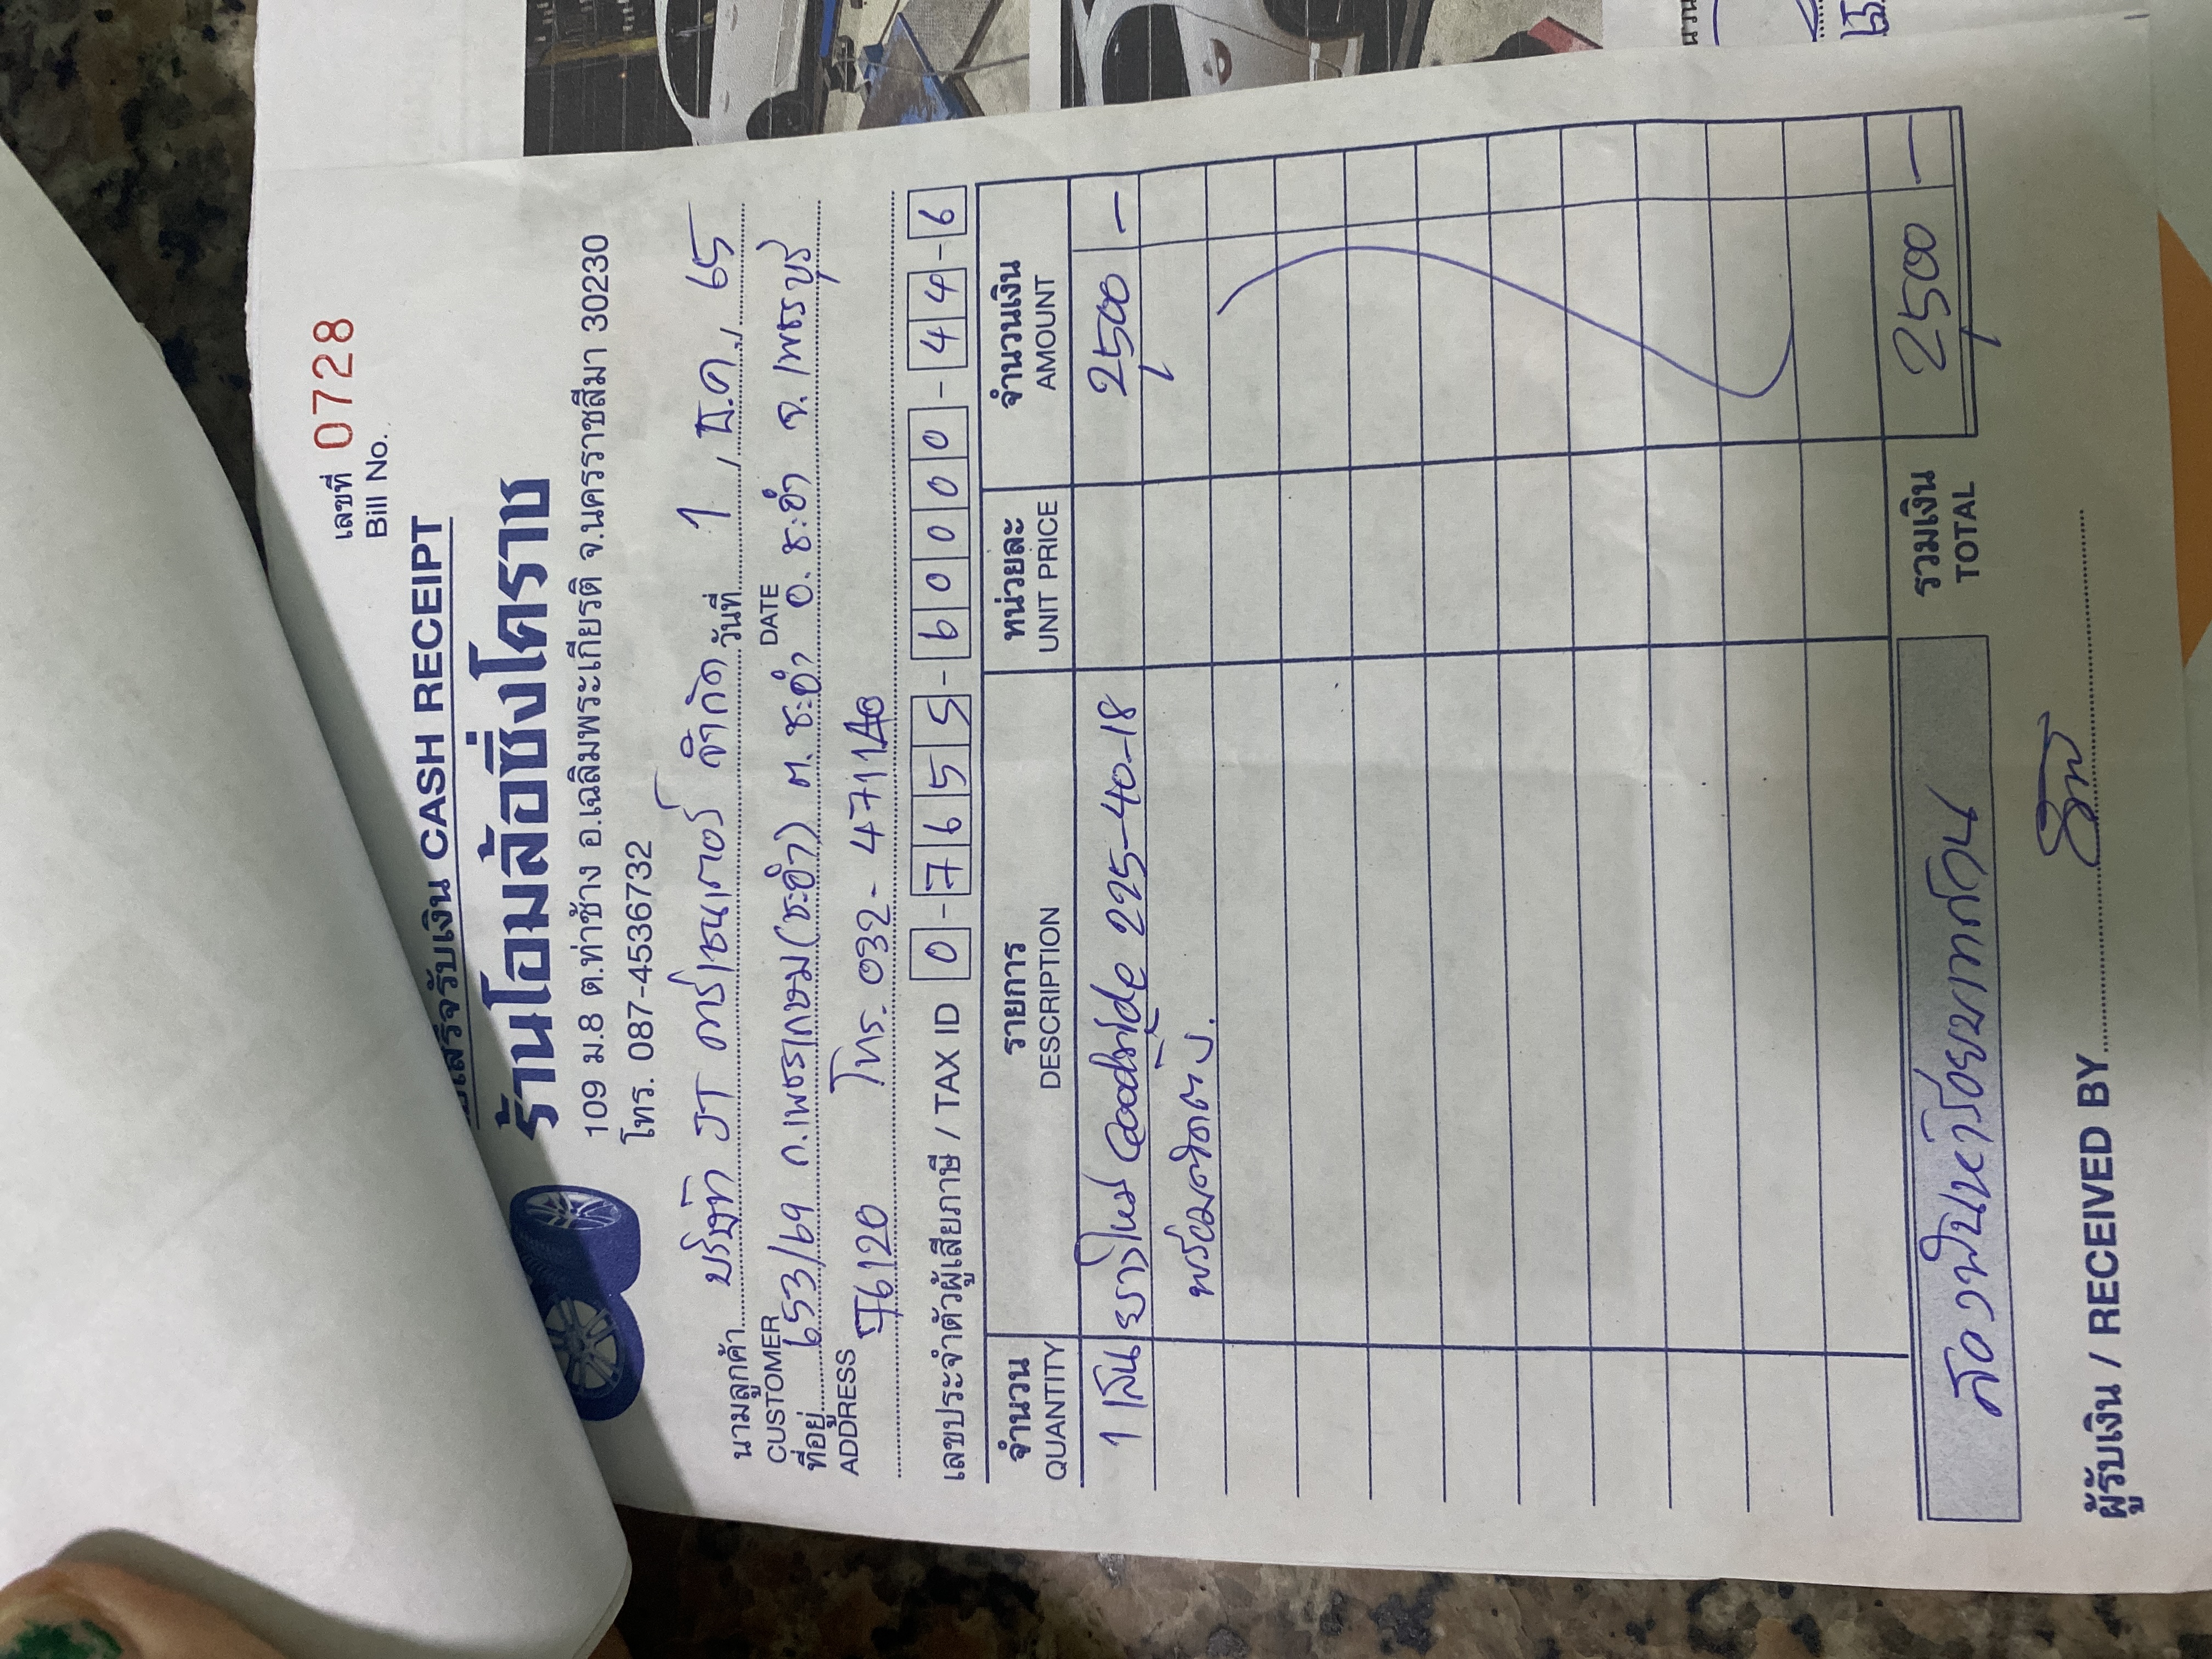 เลขที่ 0728
Bill No.
ใบเสร็จรับเงิน CASH RECEIPT
ร้านโอมล้อซิ่งโคราช
109 ม.8 ต.ท่าช้าง อ.เฉลิมพระเกียรติ จ.นครราชสีมา 30230
โทร. 087-4536732
นามลูกค้า บริษัท JT คาร์เซนเตอร์ จำกัด วันที่ 1 / มี.ค. / 65
CUSTOMER DATE
ที่อยู่ 653/69 ถ.เพชรเกษม(ชะอำ) ต.ชะอำ อ.ชะอำ จ.เพชรบุรี
ADDRESS 76120 โทร. 032-471140
เลขประจำตัวผู้เสียภาษี / TAX ID 0-7655-60000-44-6
จำนวน รายการ หน่วยละ จำนวนเงิน
QUANTITY DESCRIPTION UNIT PRICE AMOUNT
1 เส้น ยางใหม่ Goodride 225-40-18 2500 -
พร้อมติดตั้ง.
สองพันห้าร้อยบาทถ้วน รวมเงิน 2500 -
TOTAL
ผู้รับเงิน / RECEIVED BY